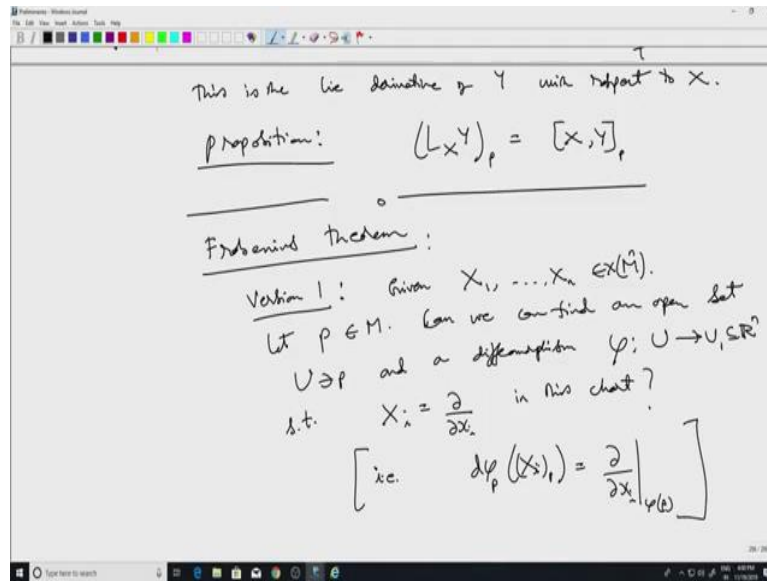 Preliminaries - Windows Journal
File Edit View Insert Actions Tools Help
This is the Lie derivative of Y with respect to X.
Proposition: (L_X Y)_p = [X,Y]_p
Frobenius theorem :
Version 1 : Given X_1, ..., X_n ∈ X(M^n).
Let p ∈ M. Can we can find an open set
U ∋ p and a diffeomorphism φ: U → U_1 ⊆ R^n
s.t. X_i = ∂/∂x_i in this chart ?
[ i.e. dφ_p((X_i)_p) = ∂/∂x_i |_φ(p) ]
Type here to search